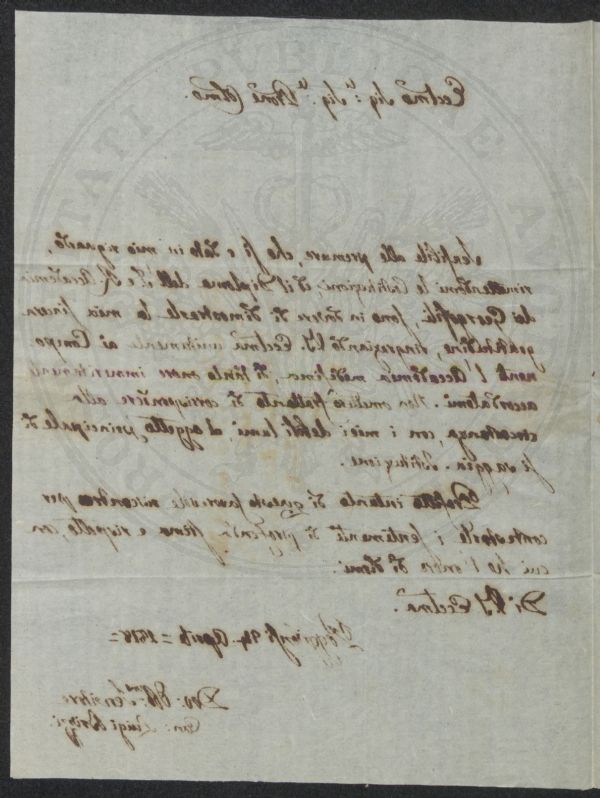 Sig.r Sig.r Pron Colmo.
Sensibile alle premure, che si è data in mio riguardo,
rimettendomi le Costituzioni, ed il Diploma dell'I. e R. Accademia
dei Georgofili, sono in dovere di dimostrarle la mia sincera
gratitudine, ringraziando V.S. unitamente ai Compo
nenti l'Accademia medesima, di tanto onore immeritamente
accordatomi. Non frattanto di corrispondere alla
circostanza, con i miei deboli lumi, al oggetto principale di
sì saggia Istituzione.
Profitto intanto di questo favorevole incontro per
contestarle i sentimenti di profonda stima e rispetto, con
cui ho l'onore di dirmi
Di V.S
24 Aprile = 1818 =
Dev: Servitore
Can: Luigi